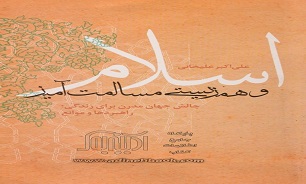 علی‌اکبر علیخانی
اسلام
و همزیستی مسالمت آمیز
چالش جهان مدرن برای زندگی؛
راهبردها و موانع
آدینه‌بوک
www.adinehbook.com